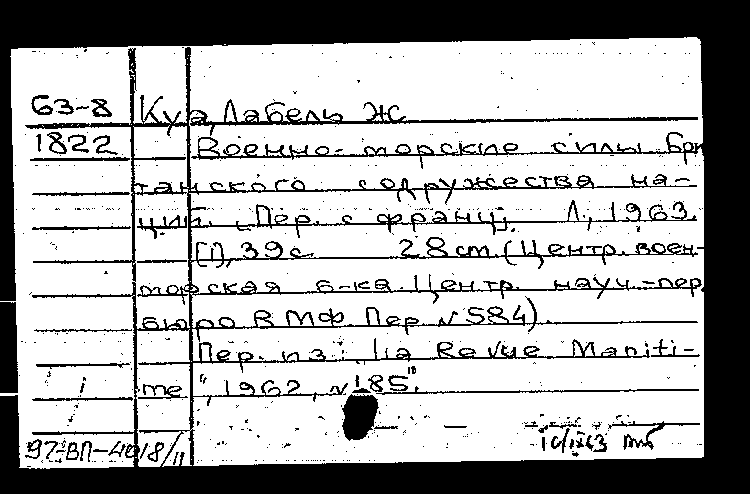 63-8 Куа, Лабель Жс
1822 Военно-морские силы Бри
танского содружества на-
ций. Пер. с франц. Л., 1963.
[1], 39с 28 cm. (Центр. воен-
морская б-ка. Центр. науч.-пер.
бюро ВМФ. Пер. №584).
Пер. из: "La Revue Maniti-
me", 1962, №185".
97-ВП-4018/11